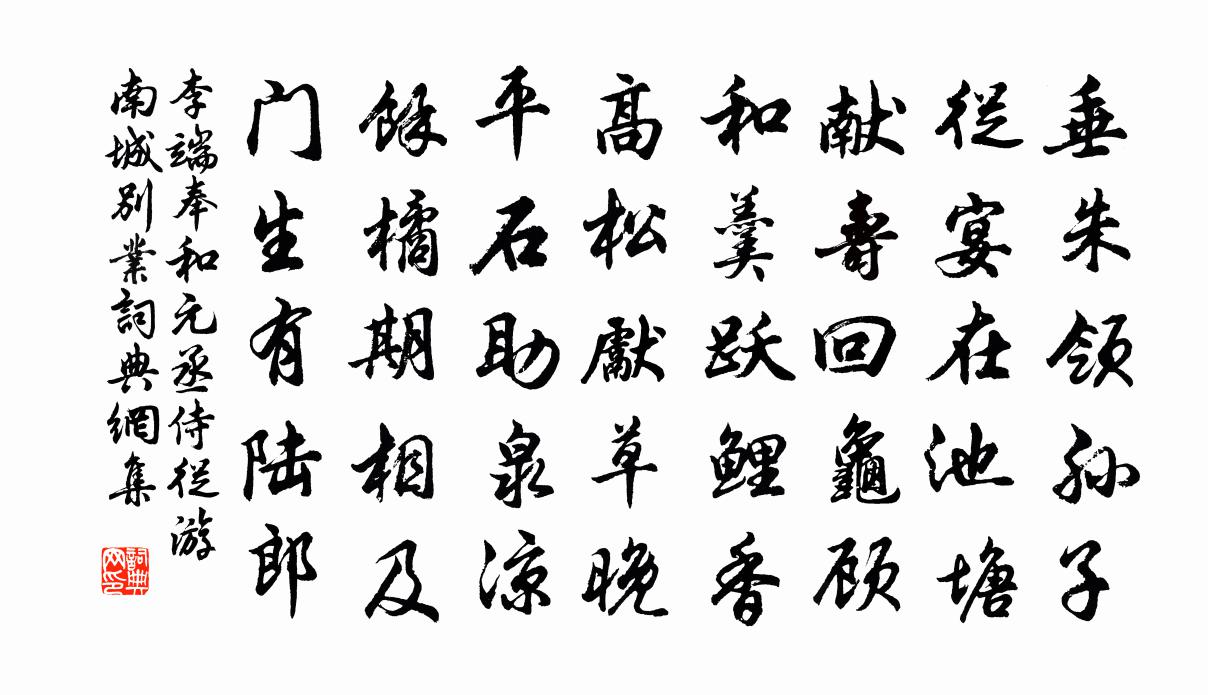 垂朱领孙子
從宴在池塘
献壽回龜顾
和羹跃鯉香
髙松獻草晚
平石助泉凉
餘橘期相及
门生有陆郎
李端奉和元丞侍從游
南城别業詞典網集
詞典网印